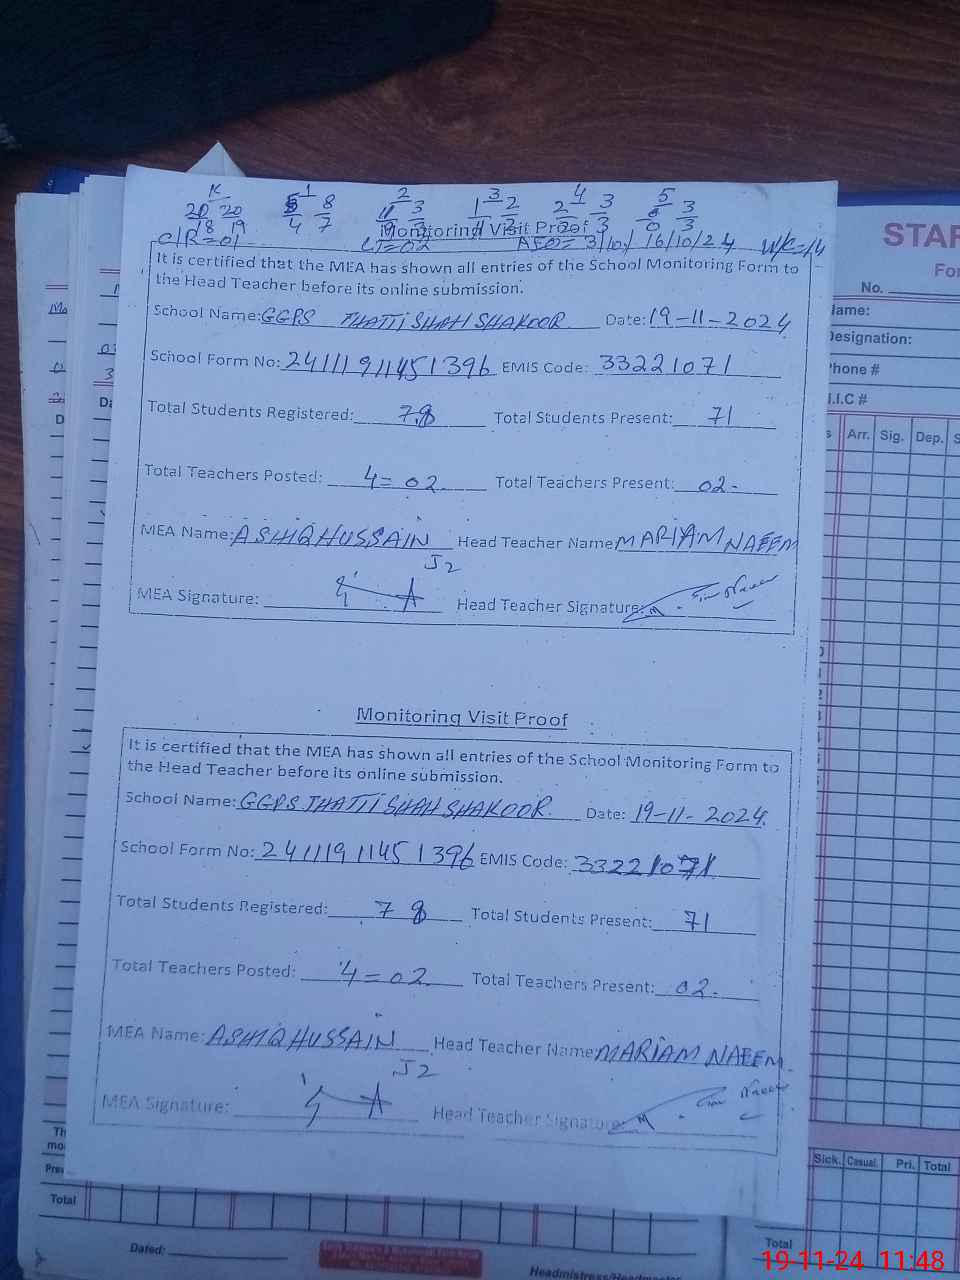 K 1 2 3 4 5
20 20 8 3 1 2 2 3 3
18 19 4 7 3 3
Monitoring Visit Proof
C/R=01 AEO= 3/10/ 16/10/24 W/C=14
It is certified that the MEA has shown all entries of the School Monitoring Form to
the Head Teacher before its online submission.
School Name: GGPS THATTI SHAH SHAKOOR Date: 19-11-2024
School Form No: 24111911451396 EMIS Code: 33221071
Total Students Registered: 78 Total Students Present: 71
Total Teachers Posted: 4=02 Total Teachers Present: 02-
MEA Name: ASHIQ HUSSAIN Head Teacher Name MARIAM NAEEM
J2
MEA Signature: Head Teacher Signature:
Monitoring Visit Proof
It is certified that the MEA has shown all entries of the School Monitoring Form to
the Head Teacher before its online submission.
School Name: GGPS THATTI SHAH SHAKOOR. Date: 19-11-2024.
School Form No: 24111911451396 EMIS Code: 33221071
Total Students Registered: 78 Total Students Present: 71
Total Teachers Posted: 4=02 Total Teachers Present: 02-
MEA Name: ASHIQ HUSSAIN Head Teacher Name MARIAM NAEEM.
J2
MEA Signature: Head Teacher Signature:
STAF
For
No.
Name:
Designation:
Phone #
N.I.C #
Arr. Sig. Dep. S
Sick. Casual. Pri. Total
Total
Total
Dated:
Headmistress/Headmaster
19-11-24 11:48